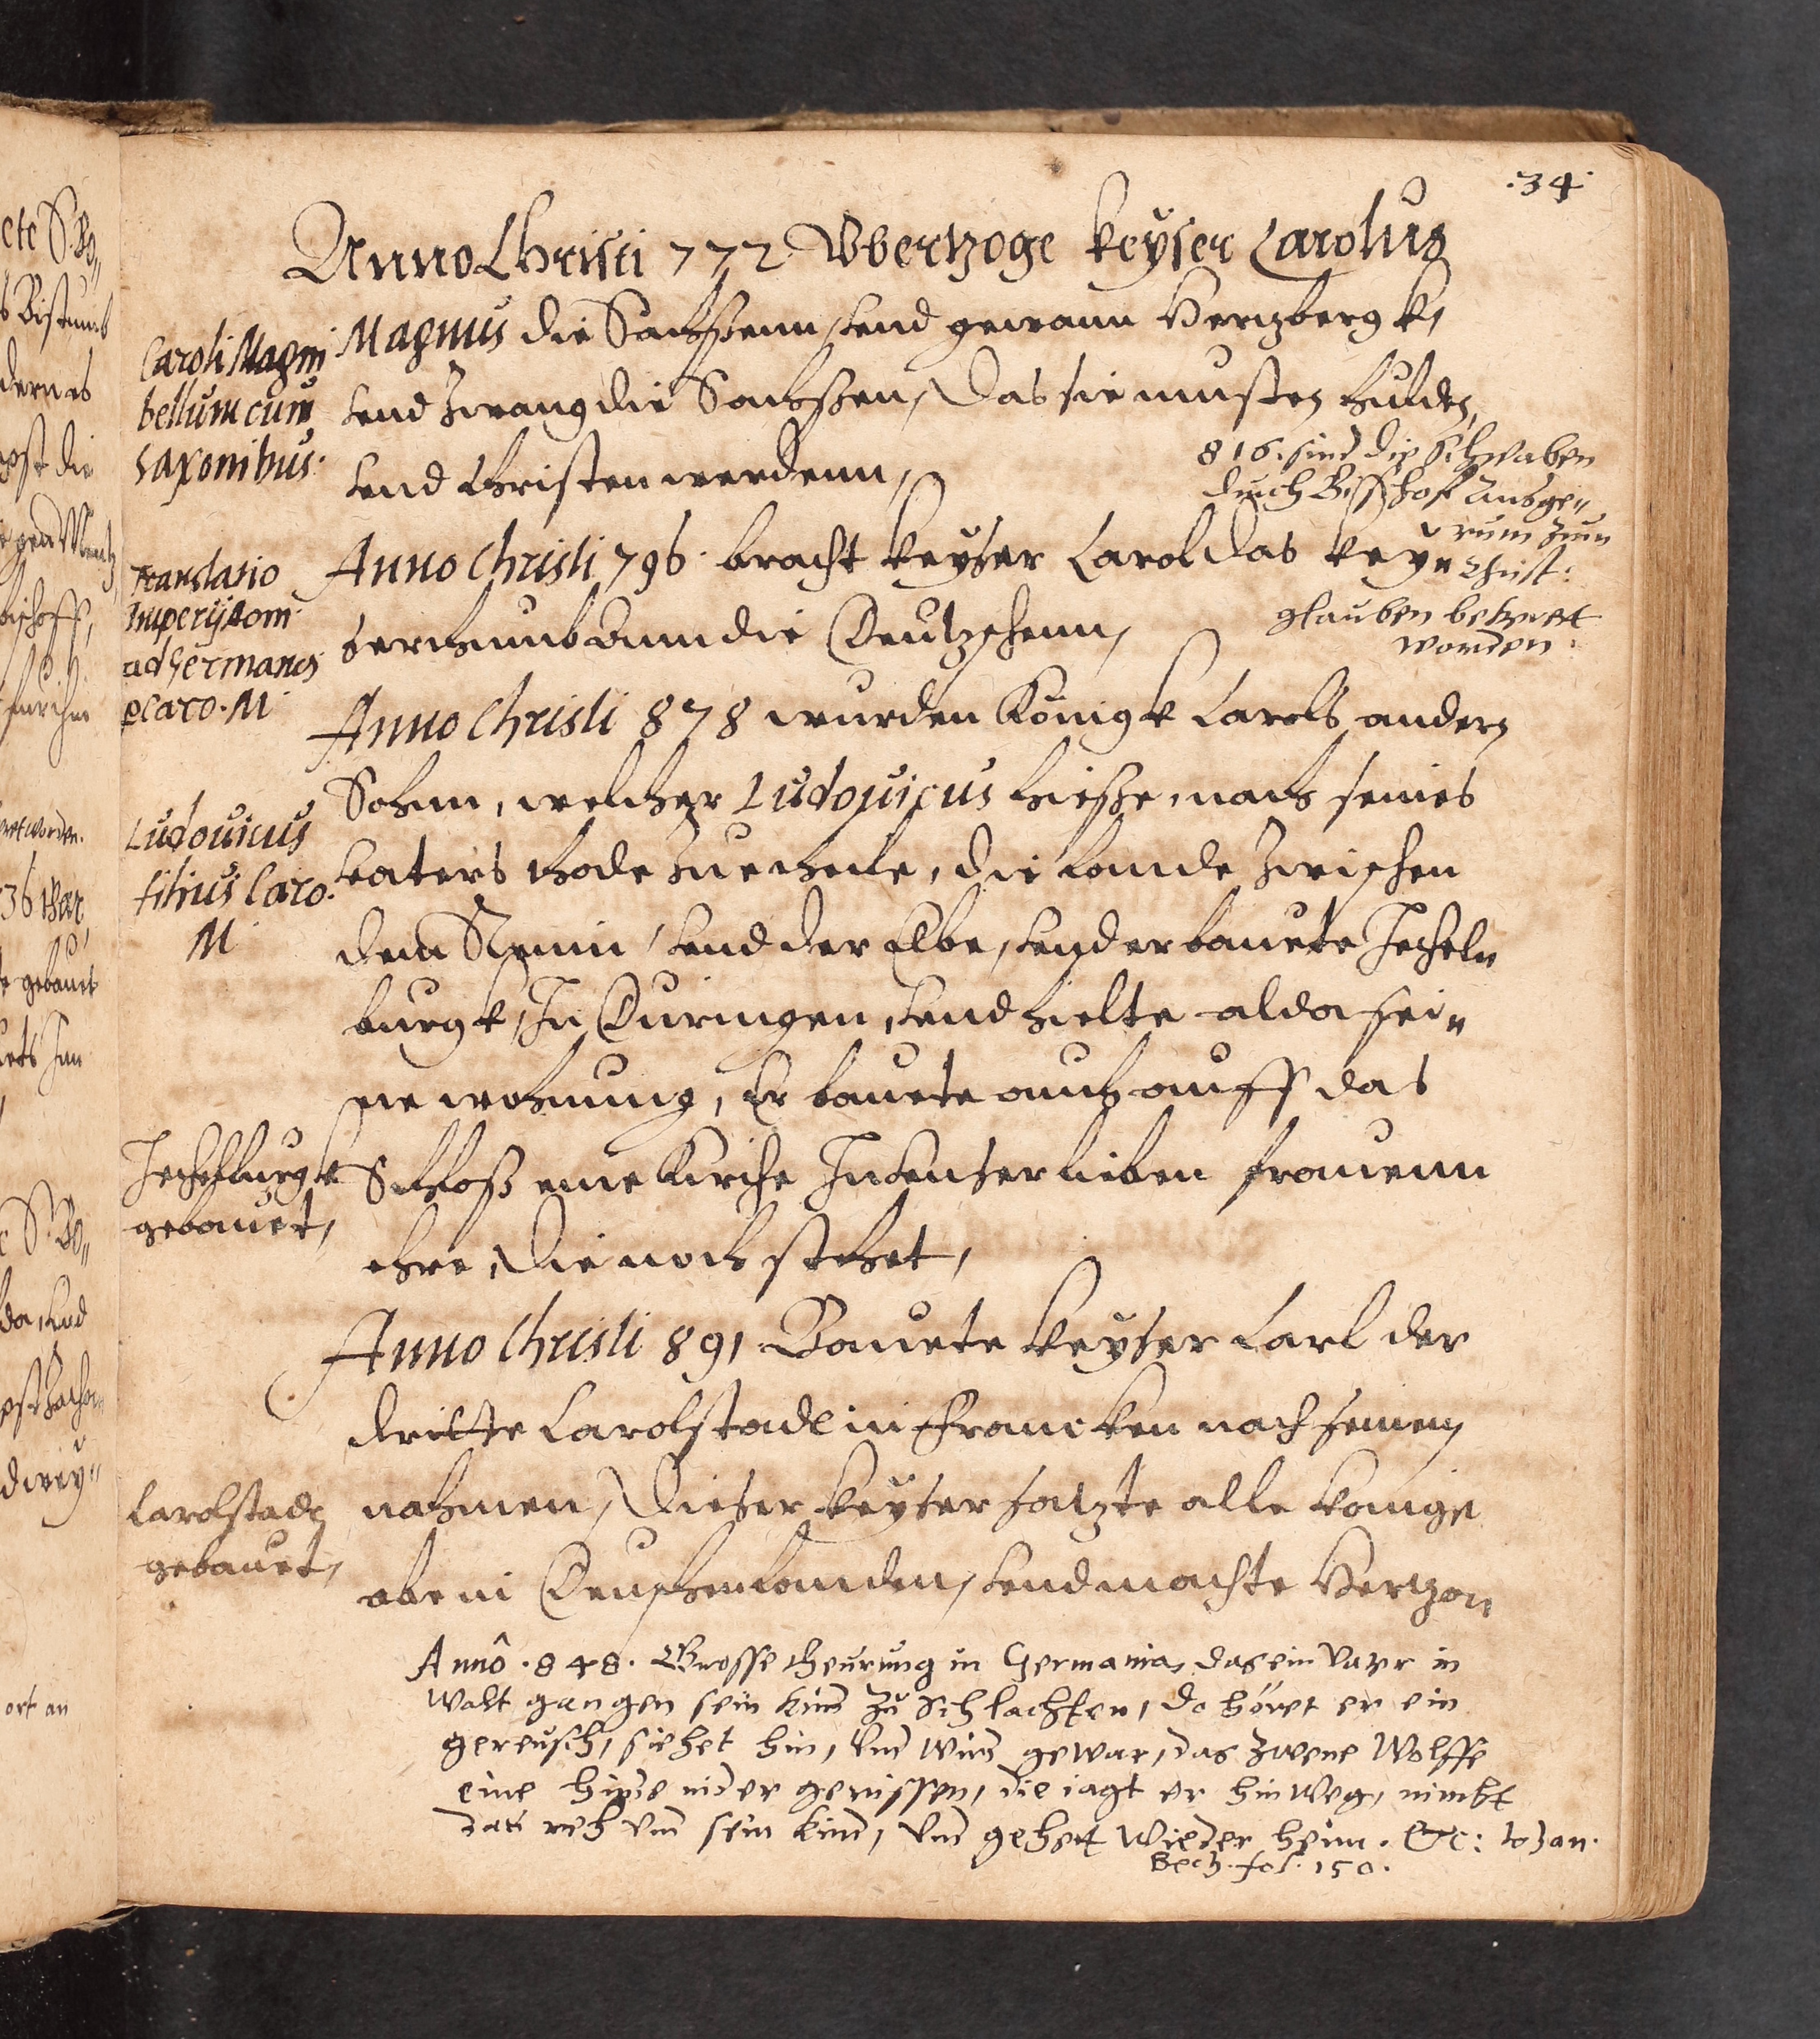 .34.
Anno Christi 772 Vbertzoge keyser Carolus
Magnus die Sachssenn, vnd gewann Hertzbergk,
vnd zwang die Sachssen, Das sie musten hulden,
vnd Christen werdenn,
Caroli Magni
bellum cum
Saxonibus.
816. sind die schwaben
durch Bisschof Ansge=
rum zum
Christ:
glauben bekert
worden.
Anno Christi 796. bracht keyser Carol das key=
serthumb ann die Deutzschenn,
Translatio
Imperij Rom
ad Germanos
p Caro. M
Anno Christi 878 wurden Königk Carols andern
Sohnn, welcher Ludouicus hiesse, nach seines
vaters thode zu theile, die lande zwischen
dem Reinn, vnd der Elbe, vnd er bauete Jecheln
burgk, In Duringen, vnd hielte alda sei=
ne wohnung, Er bauete auch auff das
Schloß eine Kirche In vnser lieben frauenn
ehre, die noch stehet,
Ludouicus
filius Caro.
M
Jechelburgk
gebauet,
Anno Christi 891 Bauete keyser Carl der
dritte Carolstadt in Francken nach seinem
nahmen, Dieser keyser satzte alle konige
abe in Deuschenlanden, vnd machte Hertzon
Carolstadt
gebauet,
Anno .848. Grosse theurung in Germania, das ein Vater in
Walt gangen sein kind zu schlachten, do höret er ein
gereusch, siehet hin, vnd wird gewar, das zwene Wolffe
eine hinde nider gerissen, die iagt er hinweg, nimbt
das reh vnd sein kind, vnd gehet wieder heim. Etc: Johan.
Bech. fol. 150.